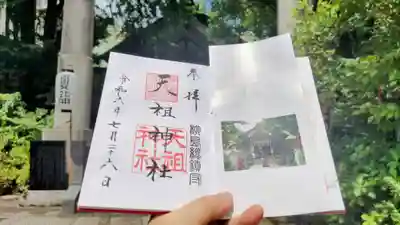 奉拝
天祖神社
天祖
神社
令和六年七月二十八日